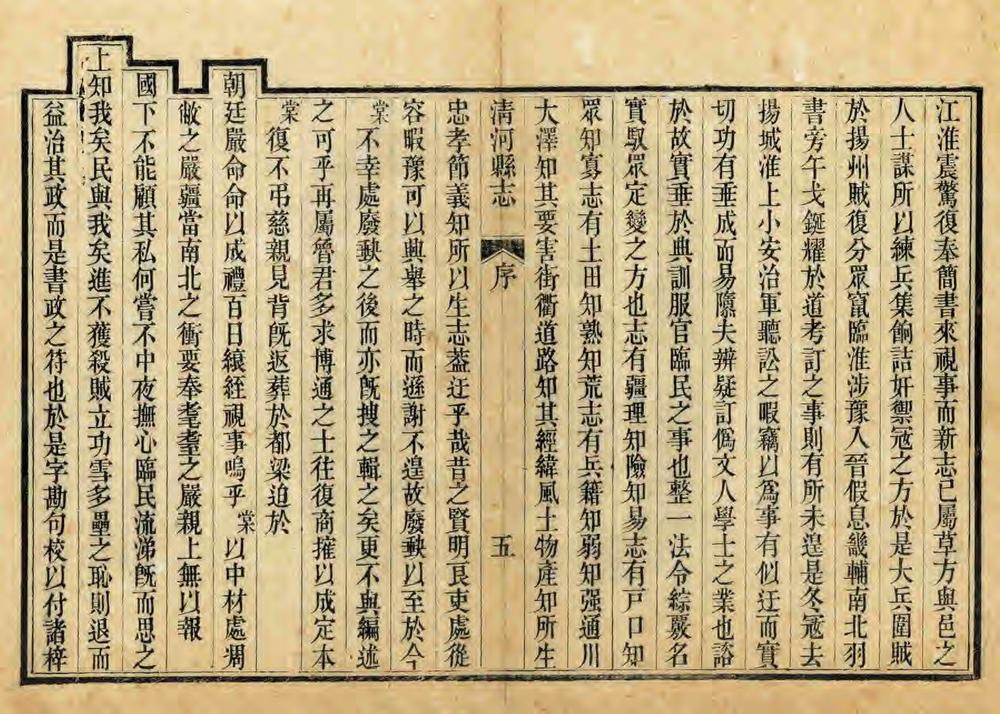 江淮震驚復奉簡書來視事而新志已屬草方與邑之
人士謀所以練兵集餉詰奸禦寇之方於是大兵圍賊
於揚州賊復分眾竄臨淮涉豫入晉假息畿輔南北羽
書旁午戈鋋耀於道考訂之事則有所未遑是冬寇去
揚城淮上小安治軍聽訟之暇竊以為事有似迂而實
切功有垂成而易隳夫辨疑訂僞文人學士之業也諮
於故實垂於典訓服官臨民之事也整一法令綜覈名
實馭眾定變之方也志有疆理知險知易志有戸口知
眾知寡志有土田知熟知荒志有兵籍知弱知强通川
大澤知其要害街衢道路知其經緯風土物產知所生
清河縣志 序 五
忠孝節義知所以生志葢迂乎哉昔之賢明良吏處從
容暇豫可以興舉之時而遜謝不遑故廢軼以至於今
棠不幸處廢軼之後而亦旣搜之輯之矣更不與編述
之可乎再屬曾君多求博通之士往復商搉以成定本
棠復不弔慈親見背旣返葬於都梁迫於
朝廷嚴命命以成禮百日縗絰視事嗚乎棠以中材處凋
敝之嚴疆當南北之衝要奉耄耋之嚴親上無以報
國下不能顧其私何嘗不中夜撫心臨民流涕旣而思之
上知我矣民與我矣進不獲殺賊立功雪多壘之恥則退而
益治其政而是書政之符也於是字勘句校以付諸梓